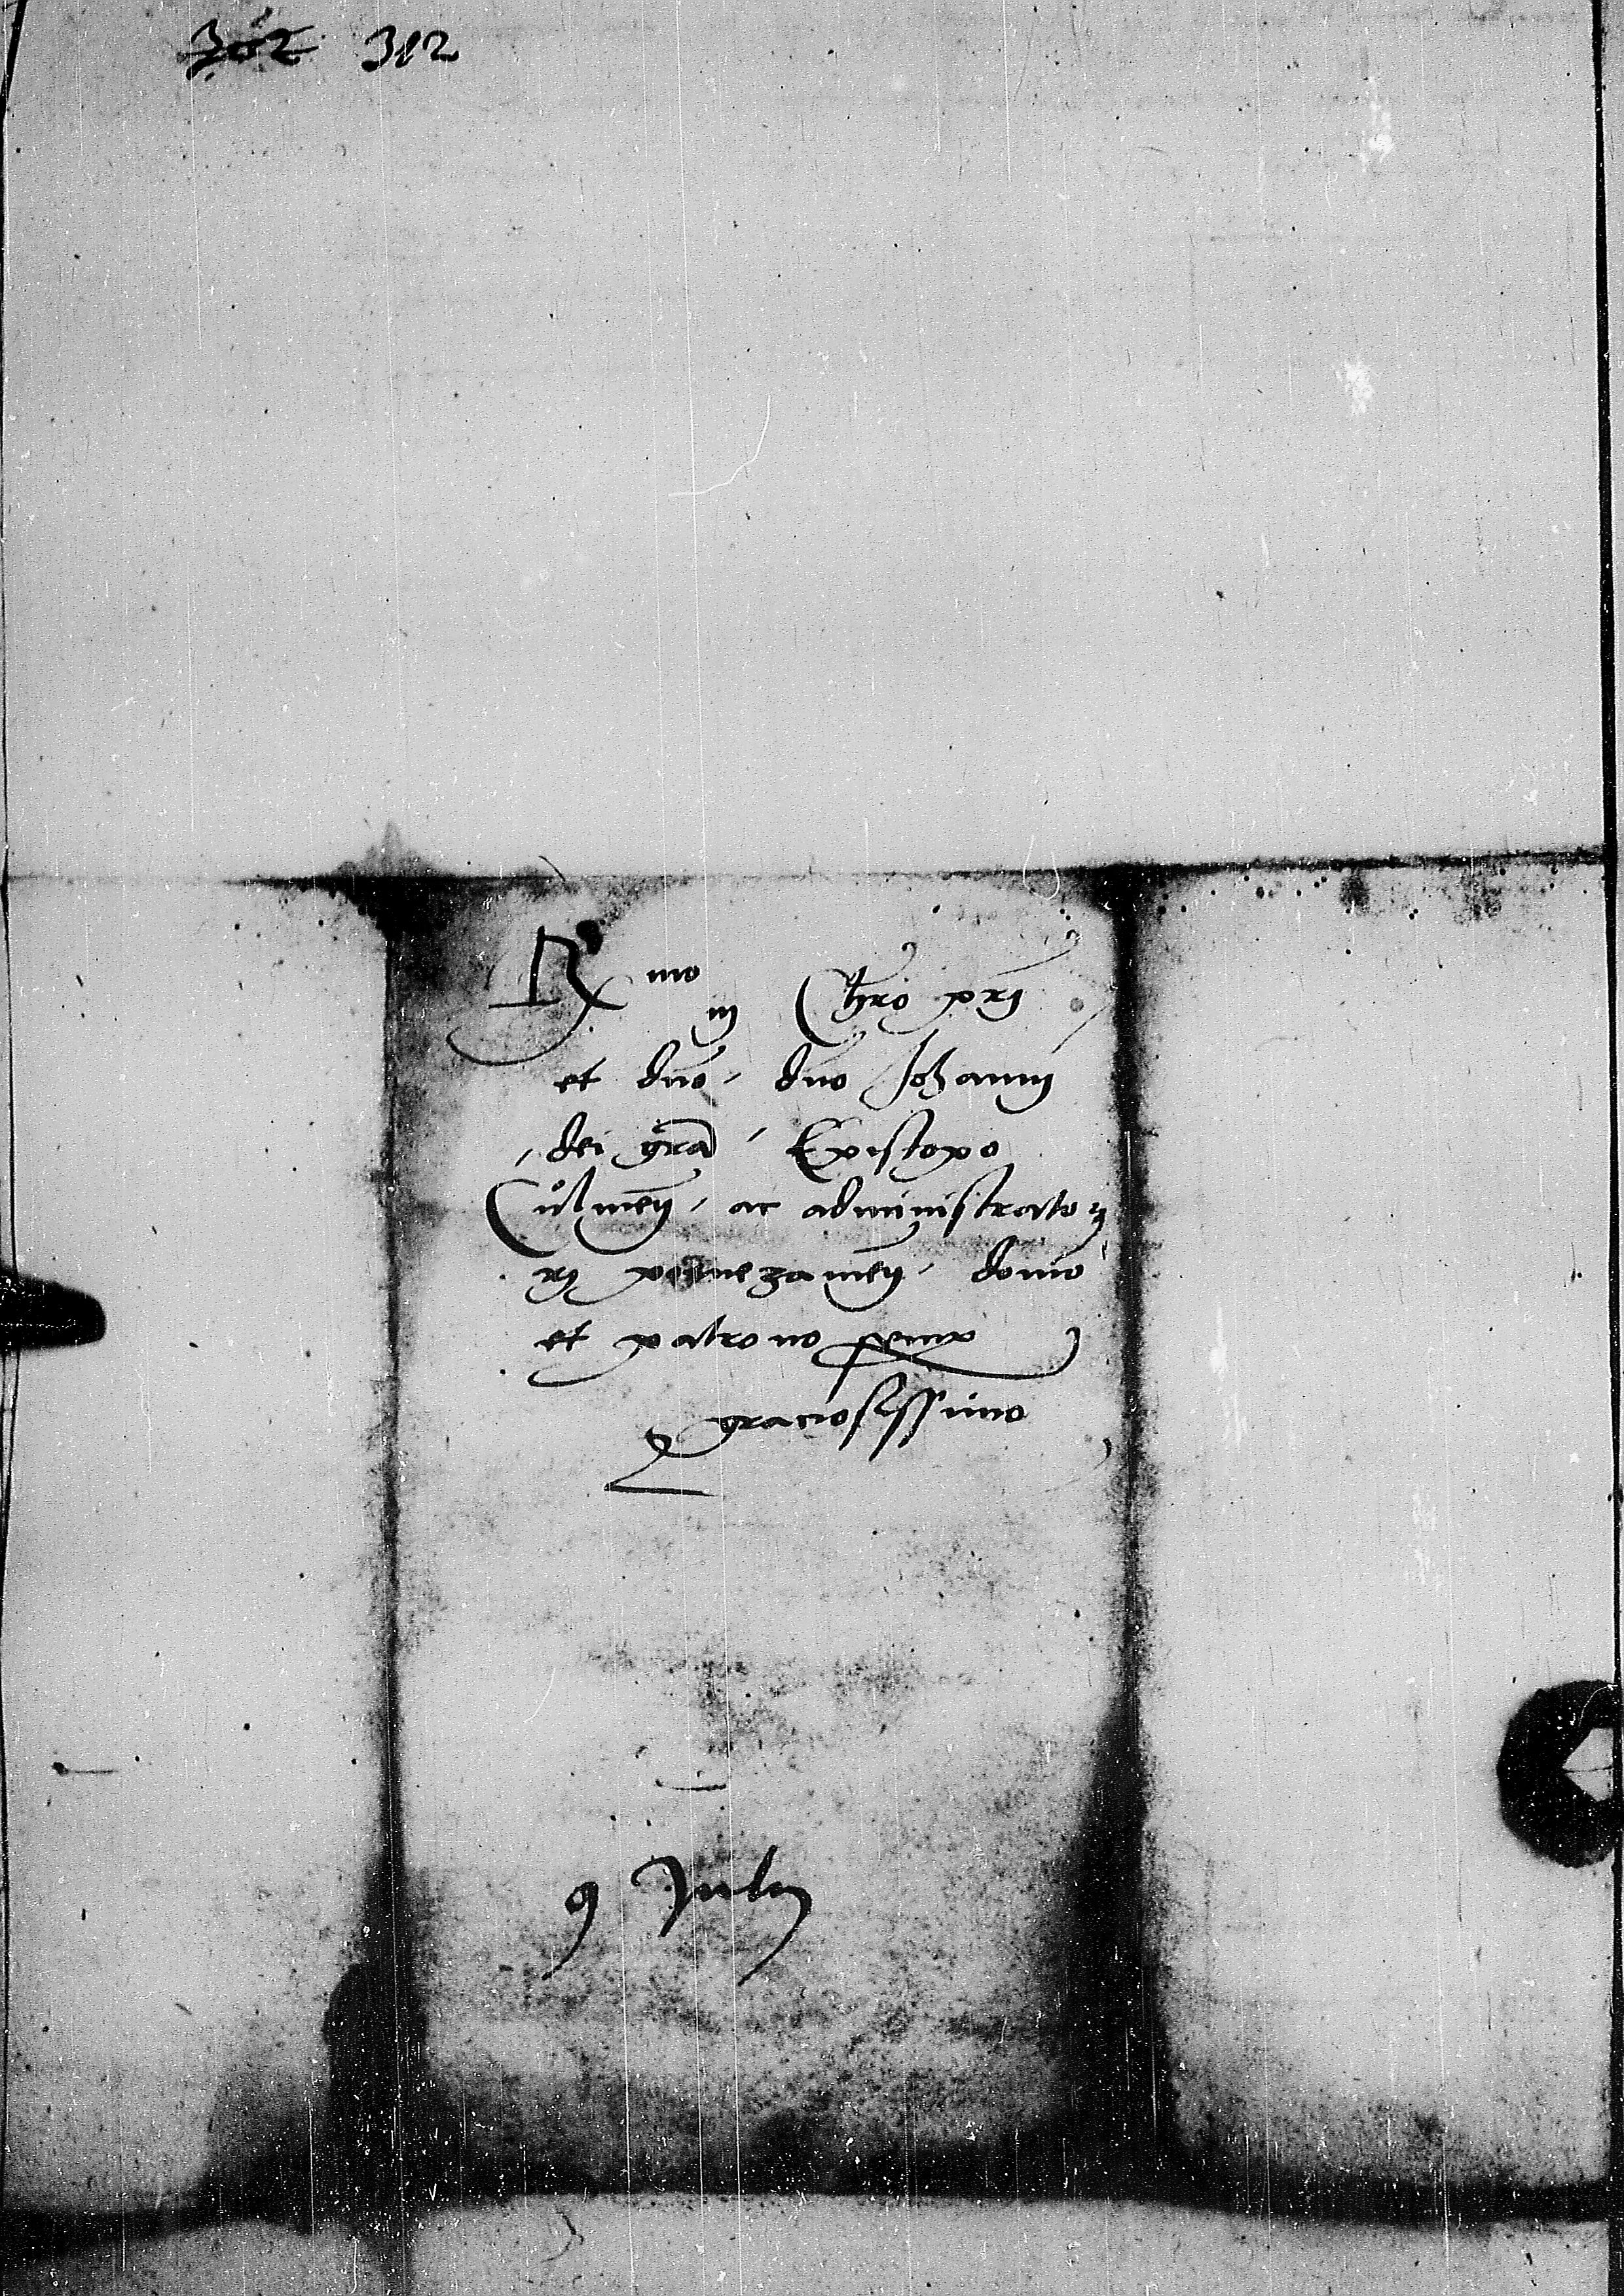 302 312
Rmo in Chro pri
et dno, dno Johanni
dei gra Episcopo
Culmen, ac administrato
ri pomezamen, domino
et patrono semper
graciosissimo
9 Julij